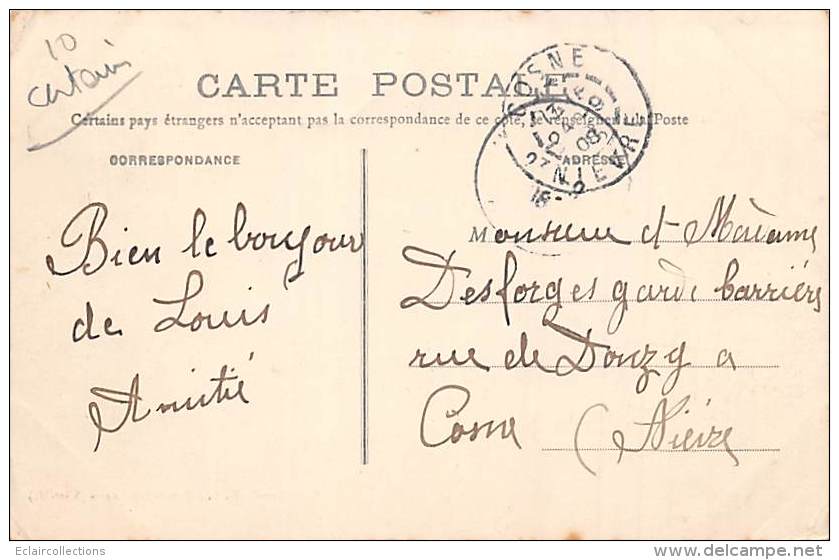 10
certains
CARTE POSTALE
Certains pays étrangers n'acceptant pas la correspondance de ce côté, se renseigner à la Poste
CORRESPONDANCE
ADRESSE
COSNE
NIEVRE
Bien le bonjour
de Louis
Amitié
Monsieur et Madame
Desforges garde barrière
rue de Donzy a
Cosne (Nièvre
Eclaircollections
www.delcampe.net